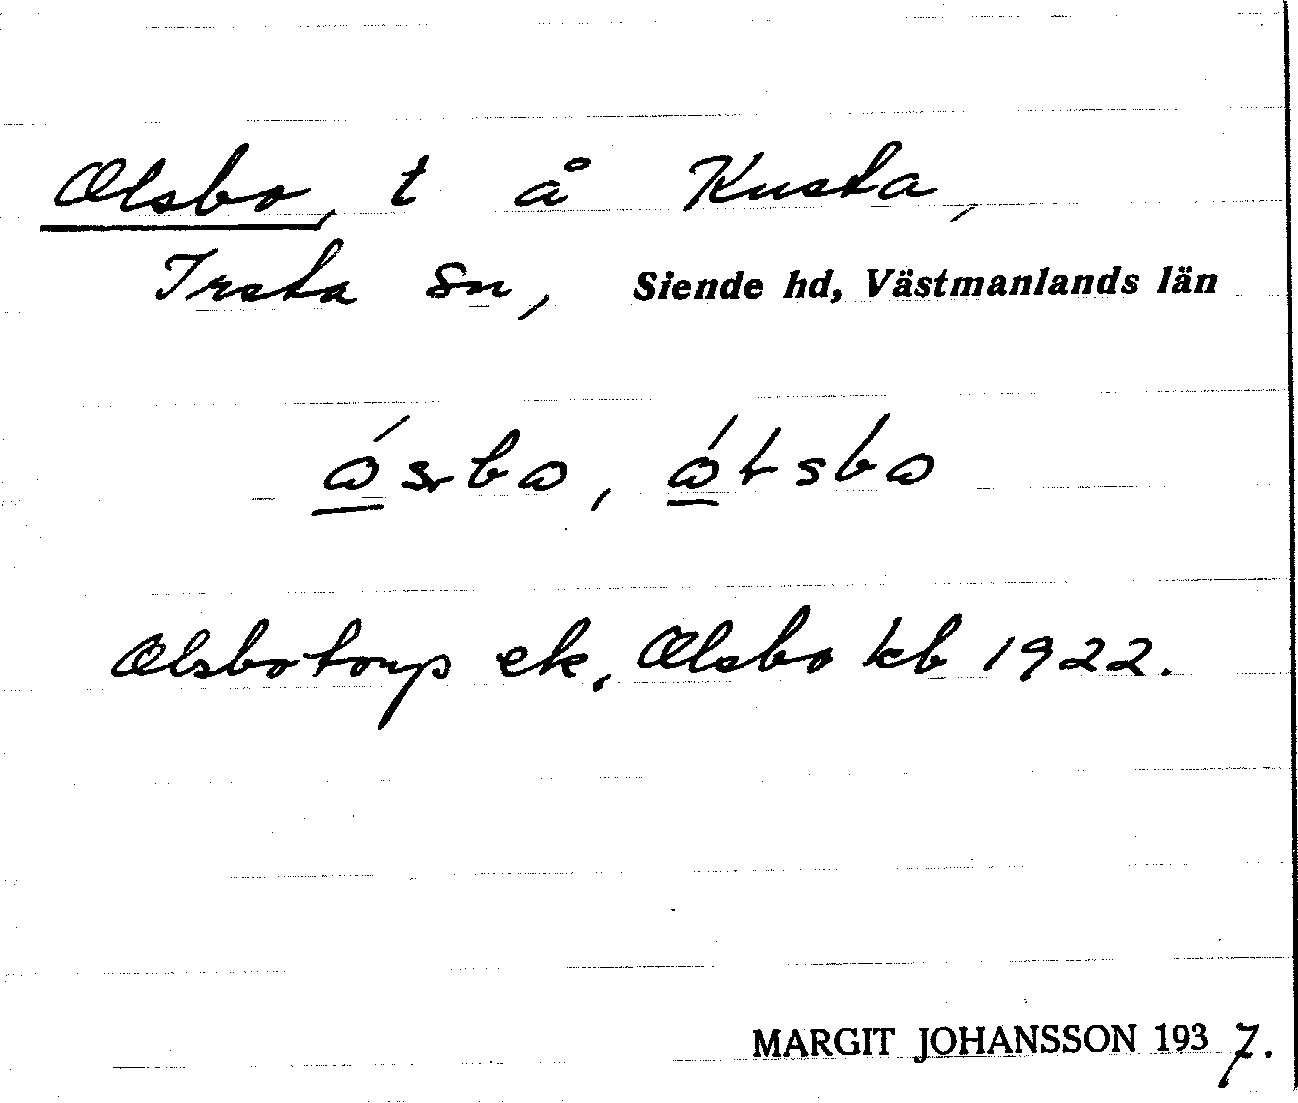 Olsbo, t å Kusta,
Irsta sn, Siende hd, Västmanlands län
ósbo, ótsbo
Olsbotorp ek, Olsbo kb 1922.
MARGIT JOHANSSON 1937.